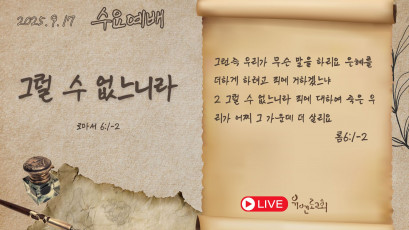 2025. 9. 17 수요예배
그럴 수 없느니라
로마서 6:1-2
그런즉 우리가 무슨 말을 하리요 은혜를
더하게 하려고 죄에 거하겠느냐
2 그럴 수 없느니라 죄에 대하여 죽은 우
리가 어찌 그 가운데 더 살리요
롬6:1-2
LIVE